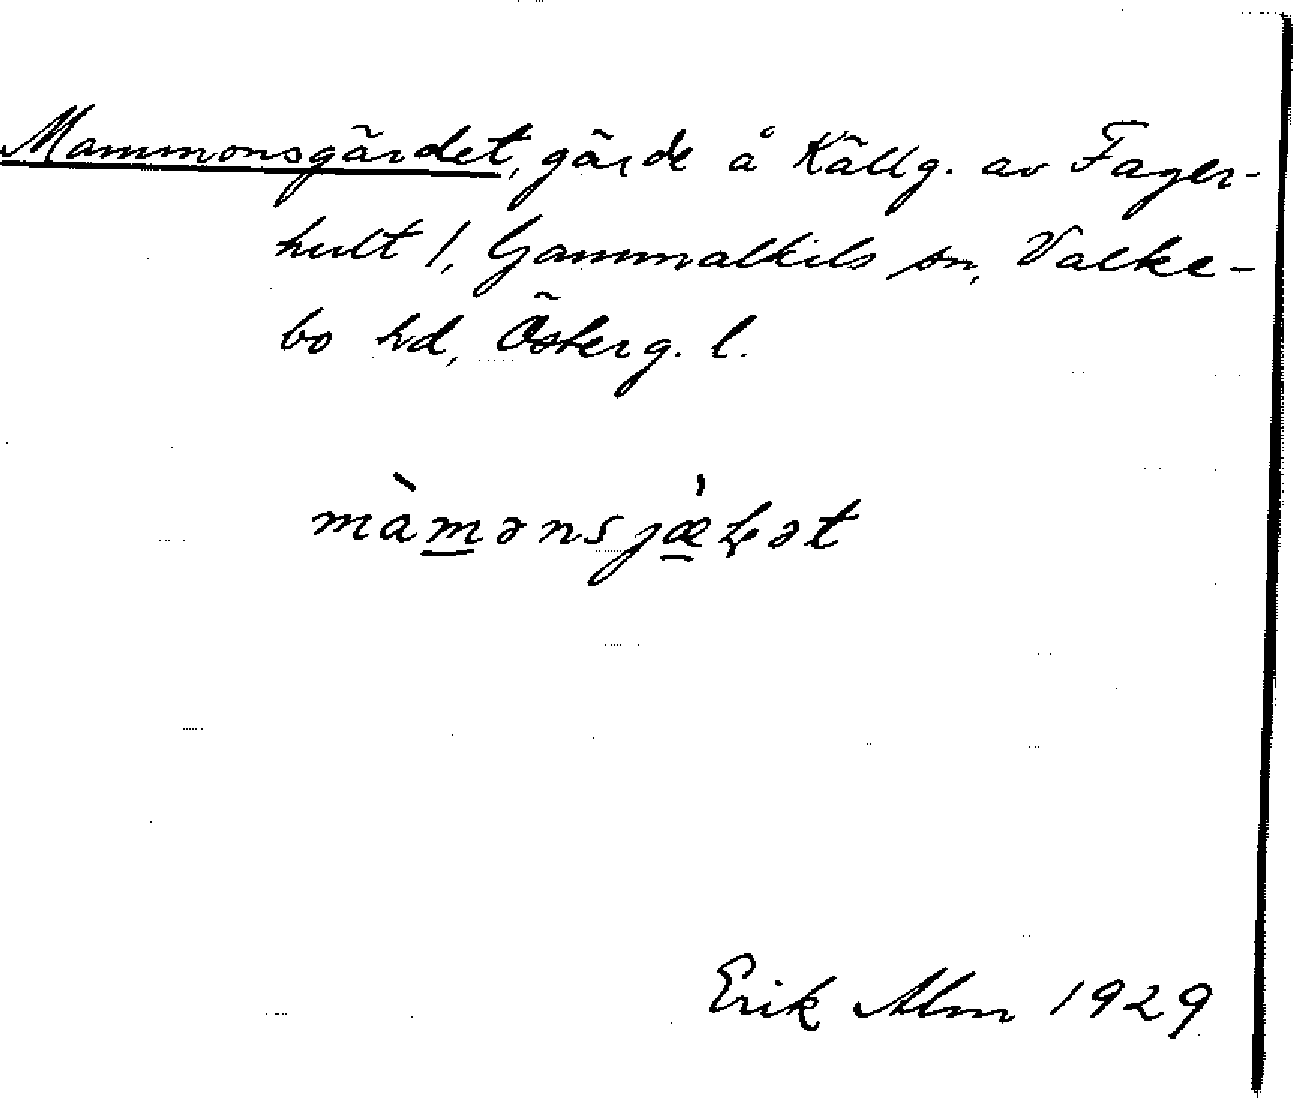 Mammonsgärdet, gärde å Källg. av Fager-
hult 1, Gammalkils sn, Valke-
bo hd, Österg. l.
màmənsjæ̀ḷət
Erik Alm 1929